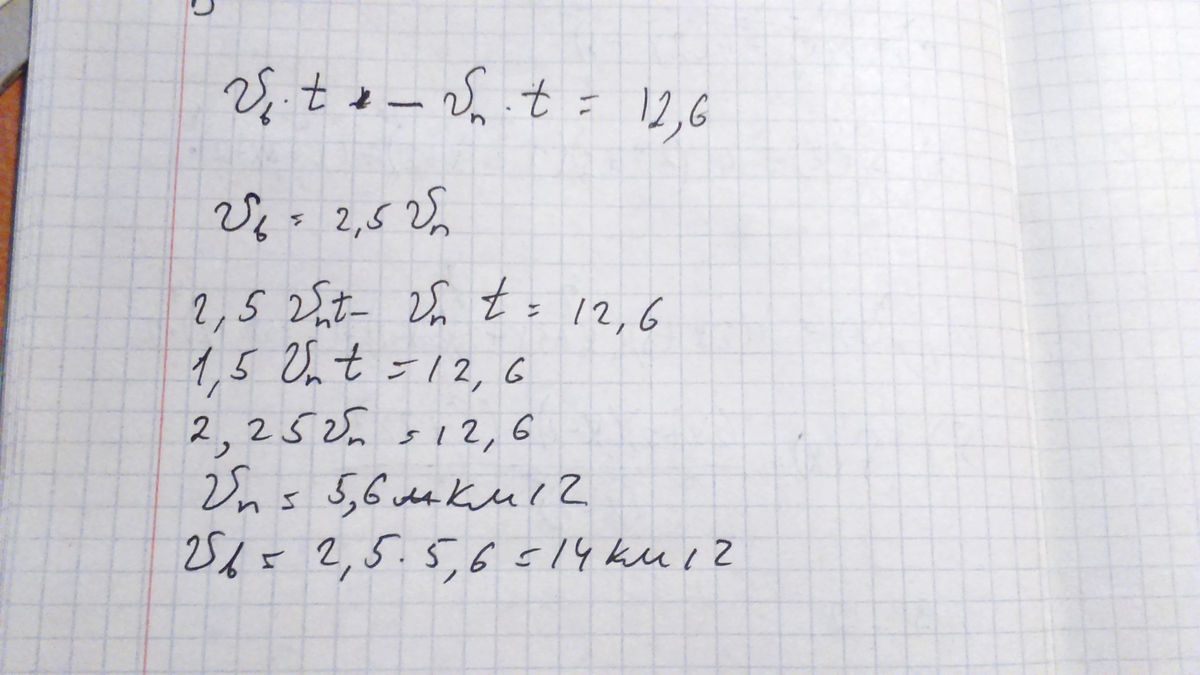 𝑣в · t - 𝑣п · t = 12,6
𝑣в = 2,5 𝑣п
2,5 𝑣пt - 𝑣п t = 12,6
1,5 𝑣п t = 12,6
2,25 𝑣п = 12,6
𝑣п = 5,6 км/г
𝑣в = 2,5 · 5,6 = 14 км/г